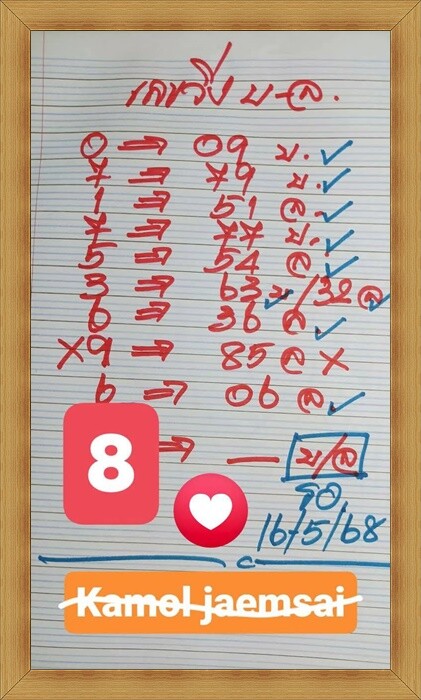 เลขวิ่ง บ-ล.
0 → 09 บ. ✓
7 → 79 บ. ✓
1 → 51 ล. ✓
7 → 77 บ. ✓
5 → 54 ล ✓
3 → 63 บ ✓/32 ล ✓
6 → 36 ล ✓
×9 → 85 ล ×
6 → 06 ล ✓
8 → — บ/ล
รอ
16/5/68
Kamol jaemsai